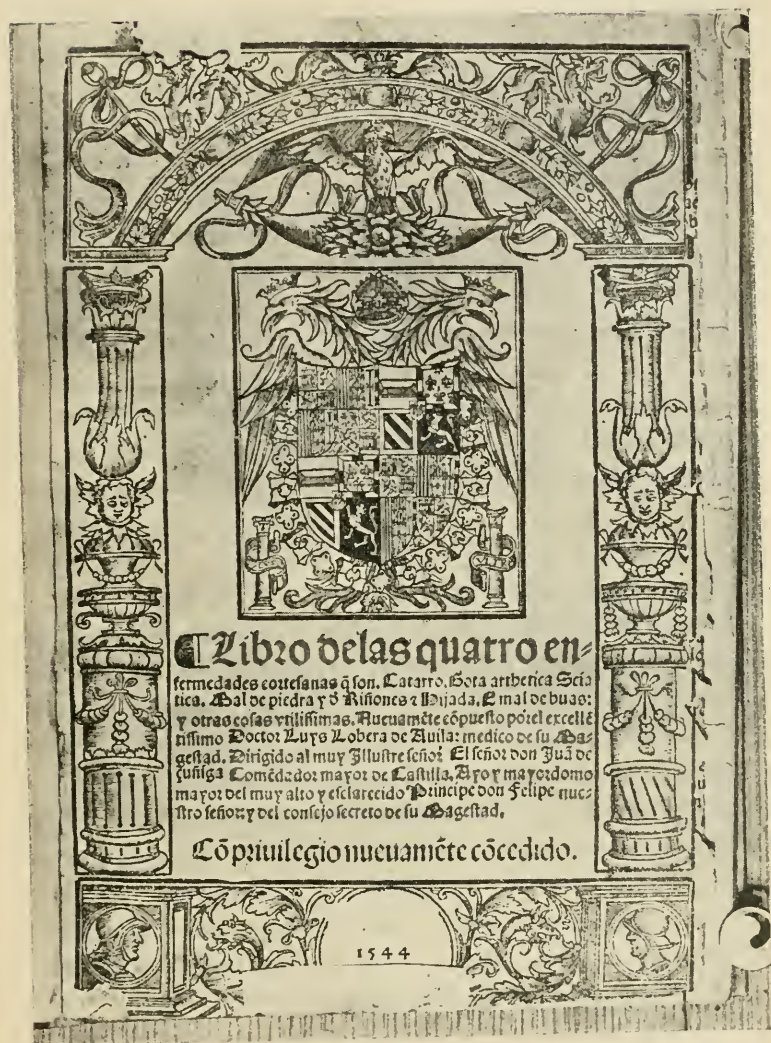 ¶Libro delas quatro en-
fermedades cortesanas q̃ son. Catarro. Gota arthetica Scia
tica. Mal de piedra y d̃ Riñones ⁊ Hijada. E mal de buas:
y otras cosas vtilissimas. Nueuamẽte cõpuesto por el excellẽ
tissimo Doctor Luys Lobera de Auila: medico de su Ma-
gestad. Dirigido al muy Illustre señor El señor don Juã de
çuñiga Comẽdador mayor de Castilla. Ayo y mayordomo
mayor del muy alto y esclarecido Principe don Felipe nue-
stro señor: y del consejo secreto de su Magestad.
Cõ priuilegio nueuamẽte cõcedido.
1544